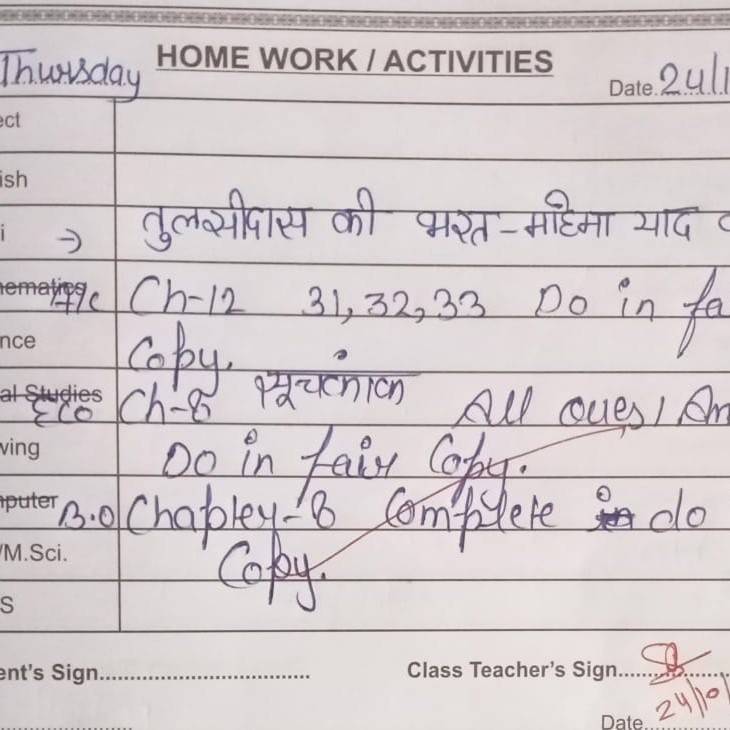 HOME WORK / ACTIVITIES
Thursday
Date.24/1
ect
ish
i → तुलसीदास की भरत-महिमा याद
hematics A/c Ch-12 31,32,33 Do in fa
nce Copy.
सूचकांक
al Studies Eco Ch-8 All Ques/An
wing Do in fair Copy.
puter B.O Chapter-8 Complete in do
/M.Sci. Copy.
S
ent's Sign
Class Teacher's Sign
24/10/
Date